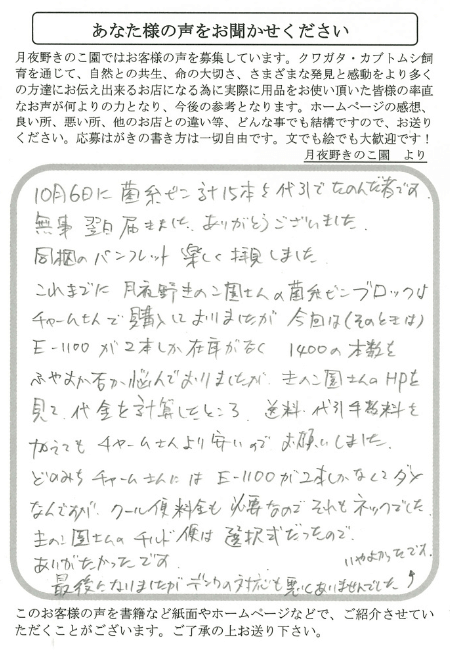 あなた様の声をお聞かせください
月夜野きのこ園ではお客様の声を募集しています。クワガタ・カブトムシ飼
育を通じて、自然との共生、命の大切さ、さまざまな発見と感動をより多く
の方達にお伝え出来るお店になる為に実際に用品をお使い頂いた皆様の率直
なお声が何よりの力となり、今後の参考となります。ホームページの感想、
良い所、悪い所、他のお店との違い等、どんな事でも結構ですので、お送り
ください。応募はがきの書き方は一切自由です。文でも絵でも大歓迎です！
月夜野きのこ園　より
10月6日に菌糸ビン計15本を代引でたのんだ者です。
無事翌日届きました。ありがとうございました。
同梱のパンフレット楽しく拝見しました。
これまでに月夜野きのこ園さんの菌糸ビンブロックは
チャームさんで購入しておりましたが今回は(そのときは)
E-1100が2本しか在庫がなく 1400の本数を
ふやすか否か悩んでおりましたが、きのこ園さんのHPを
見て、代金を計算したところ、送料・代引手数料を
加えてもチャームさんより安いのでお願いしました。
どのみちチャームさんにはE-1100が2本しかなくてダメ
なんですが、クール便料金も必要なのでそれもネックでした。
きのこ園さんのチルド便は選択式だったので、
ありがたかったです。
いやよかったです。
最後になりましたがデンワの対応も悪くありませんでした
このお客様の声を書籍など紙面やホームページなどで、ご紹介させてい
ただくことがございます。ご了承の上お送り下さい。